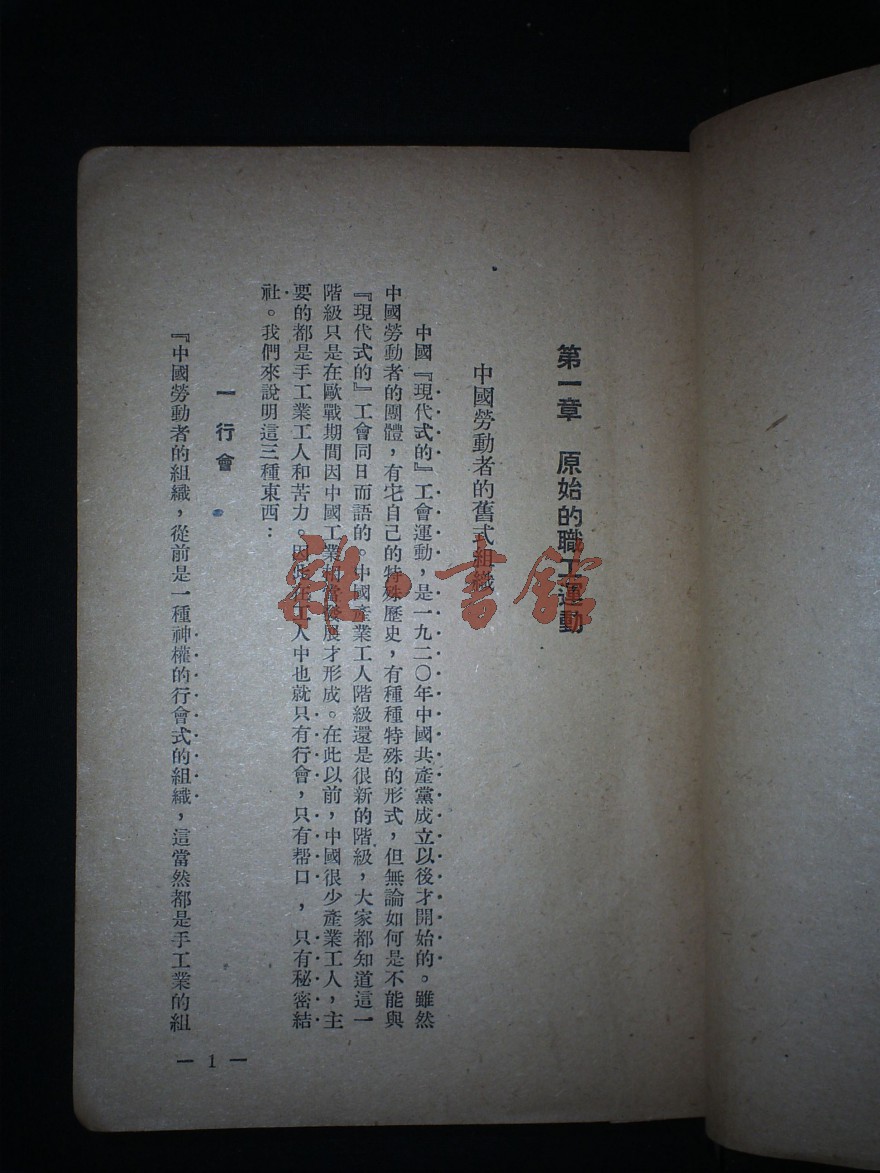 第一章 原始的職工運動
中國勞動者的舊式組織
中國『現代式的』工會運動，是一九二〇年中國共產黨成立以後才開始的。雖然
中國勞動者的團體，有它自己的特殊歷史，有種種特殊的形式，但無論如何是不能與
『現代式的』工會同日而語的。中國產業工人階級還是很新的階級，大家都知道這一
階級只是在歐戰期間因中國工業相當發展才形成。在此以前，中國很少產業工人，主
要的都是手工業工人和苦力。因此在工人中也就只有行會，只有帮口，只有秘密結
社。我們來說明這三種東西：
一 行會
『中國勞動者的組織，從前是一種神權的行會式的組織，這當然都是手工業的組
— 1 —
雜·書館